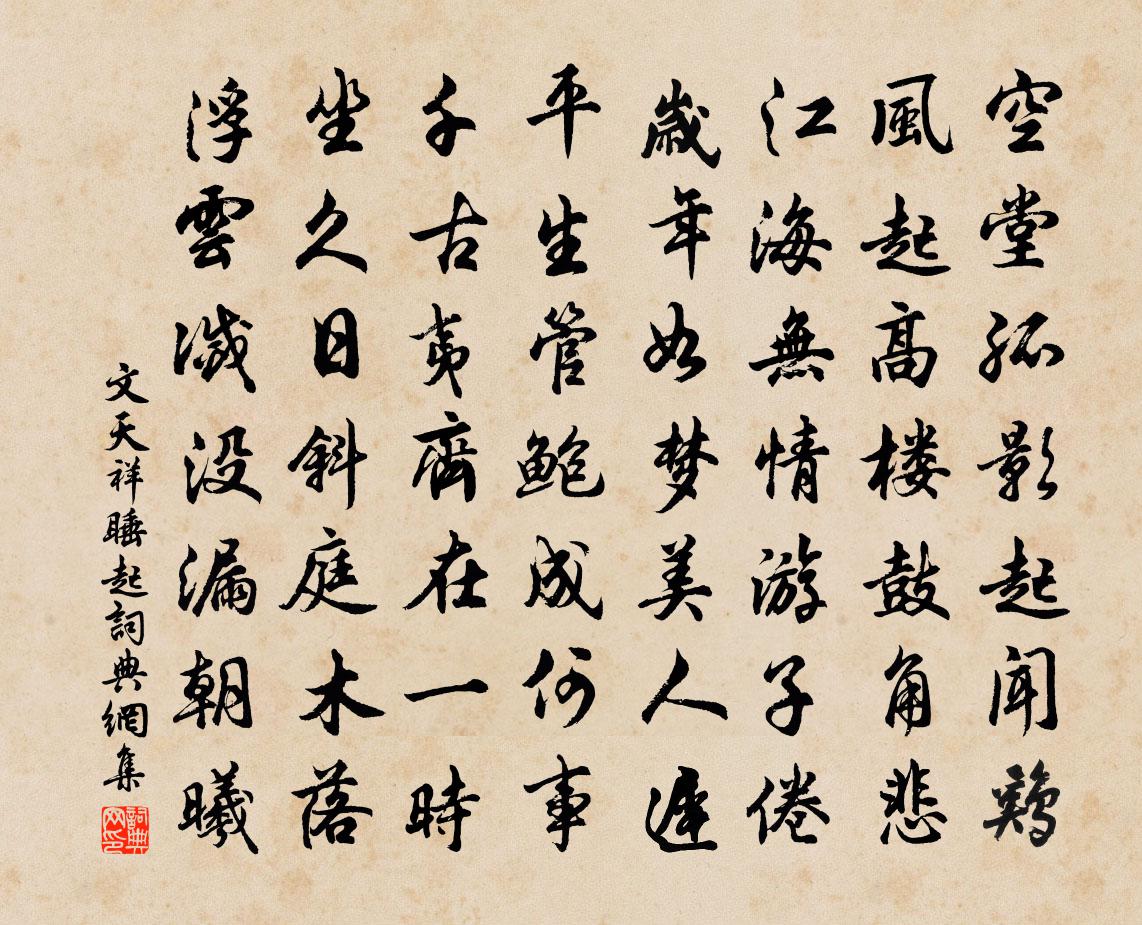 空堂孤影起闻鷄
風起高楼鼓角悲
江海無情游子倦
歳年如梦美人遲
平生管鮑成何事
千古夷齊在一時
坐久日斜庭木落
浮雲滅没漏朝曦
文天祥睡起詞典網集
詞典网印